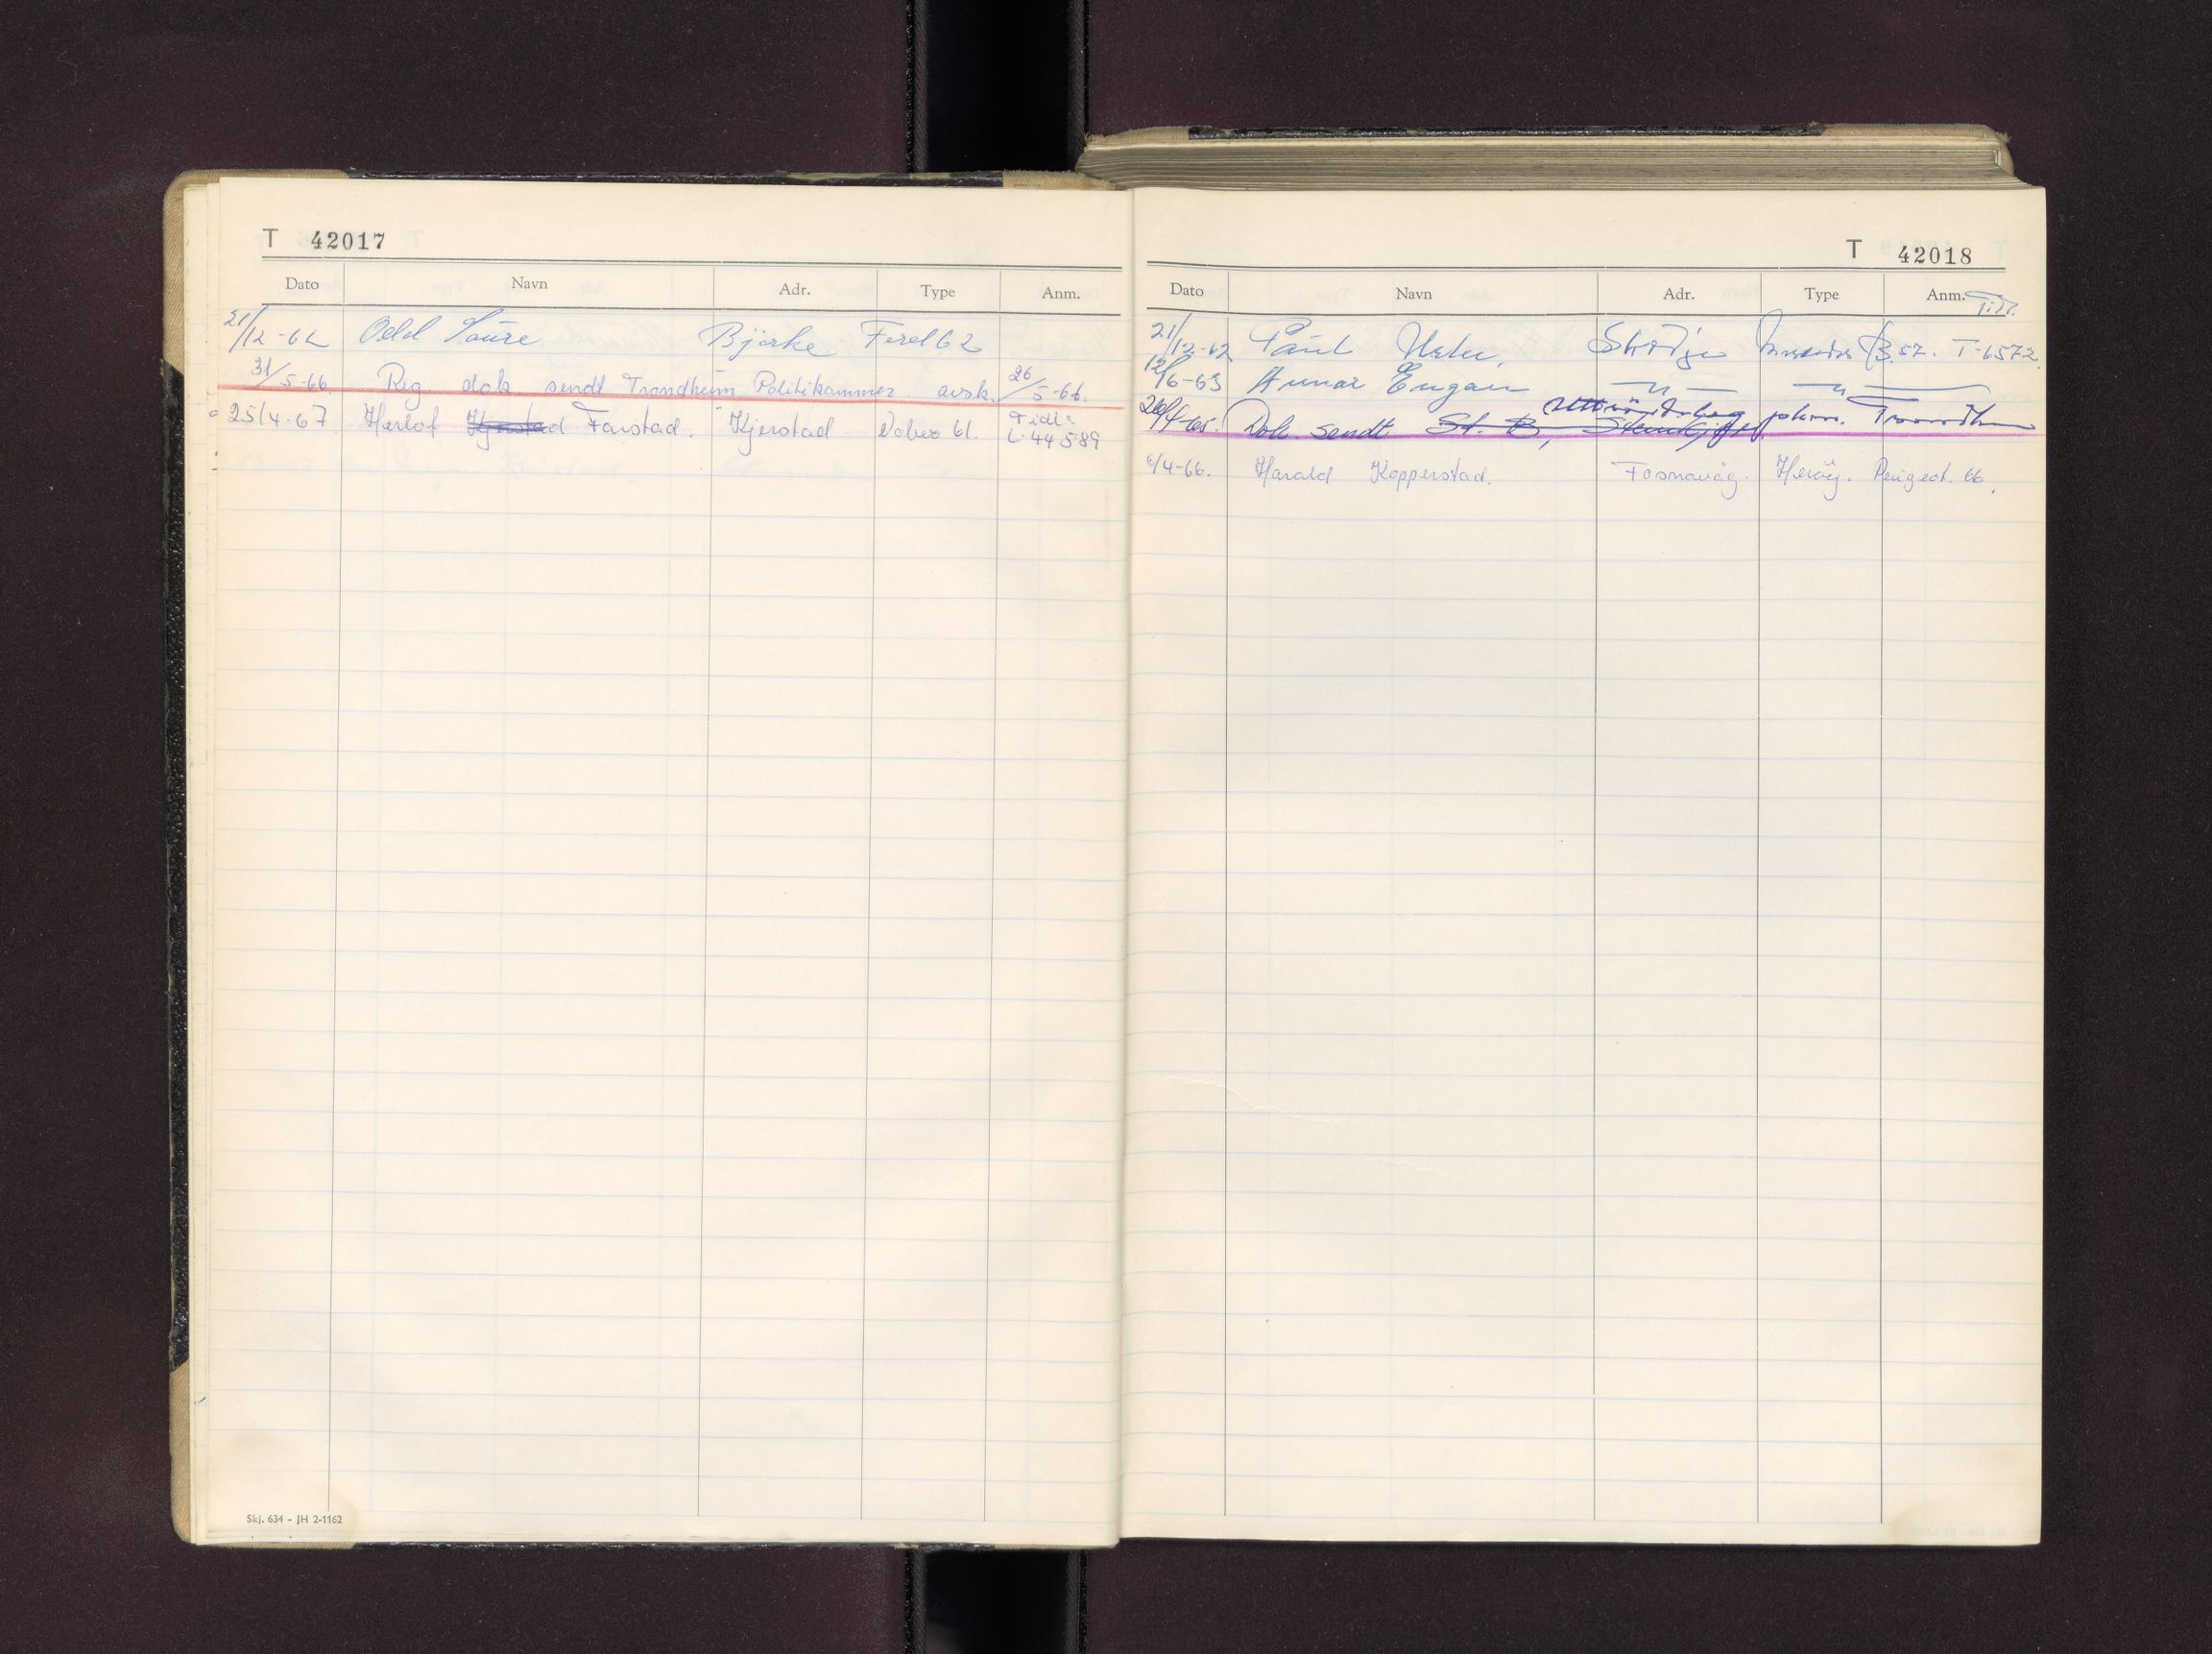 T 42017
Dato Navn Adr. Type Anm.
21/12-62 Odd Saure Bjørke Ford 62
31/5-66. Reg dok sendt Trondheim Politikammer avsk. 26/5-66.
25/4-67 Herlof Farstad. Kjerstad Volvo 61. Tidl: L-44589
Skj. 634 - JH 2-1162
T 42018
Dato Navn Adr. Type Anm. Tidl.
21/12-62 Paul Skodje 57. T-6572
12/6-63 Gunnar Engan —"— —"—
26/4-65. Dok. sendt St. B, Steinkjer
6/4-66. Harald Kopperstad. Fosnavåg. Herøy. Peugeot. 66.